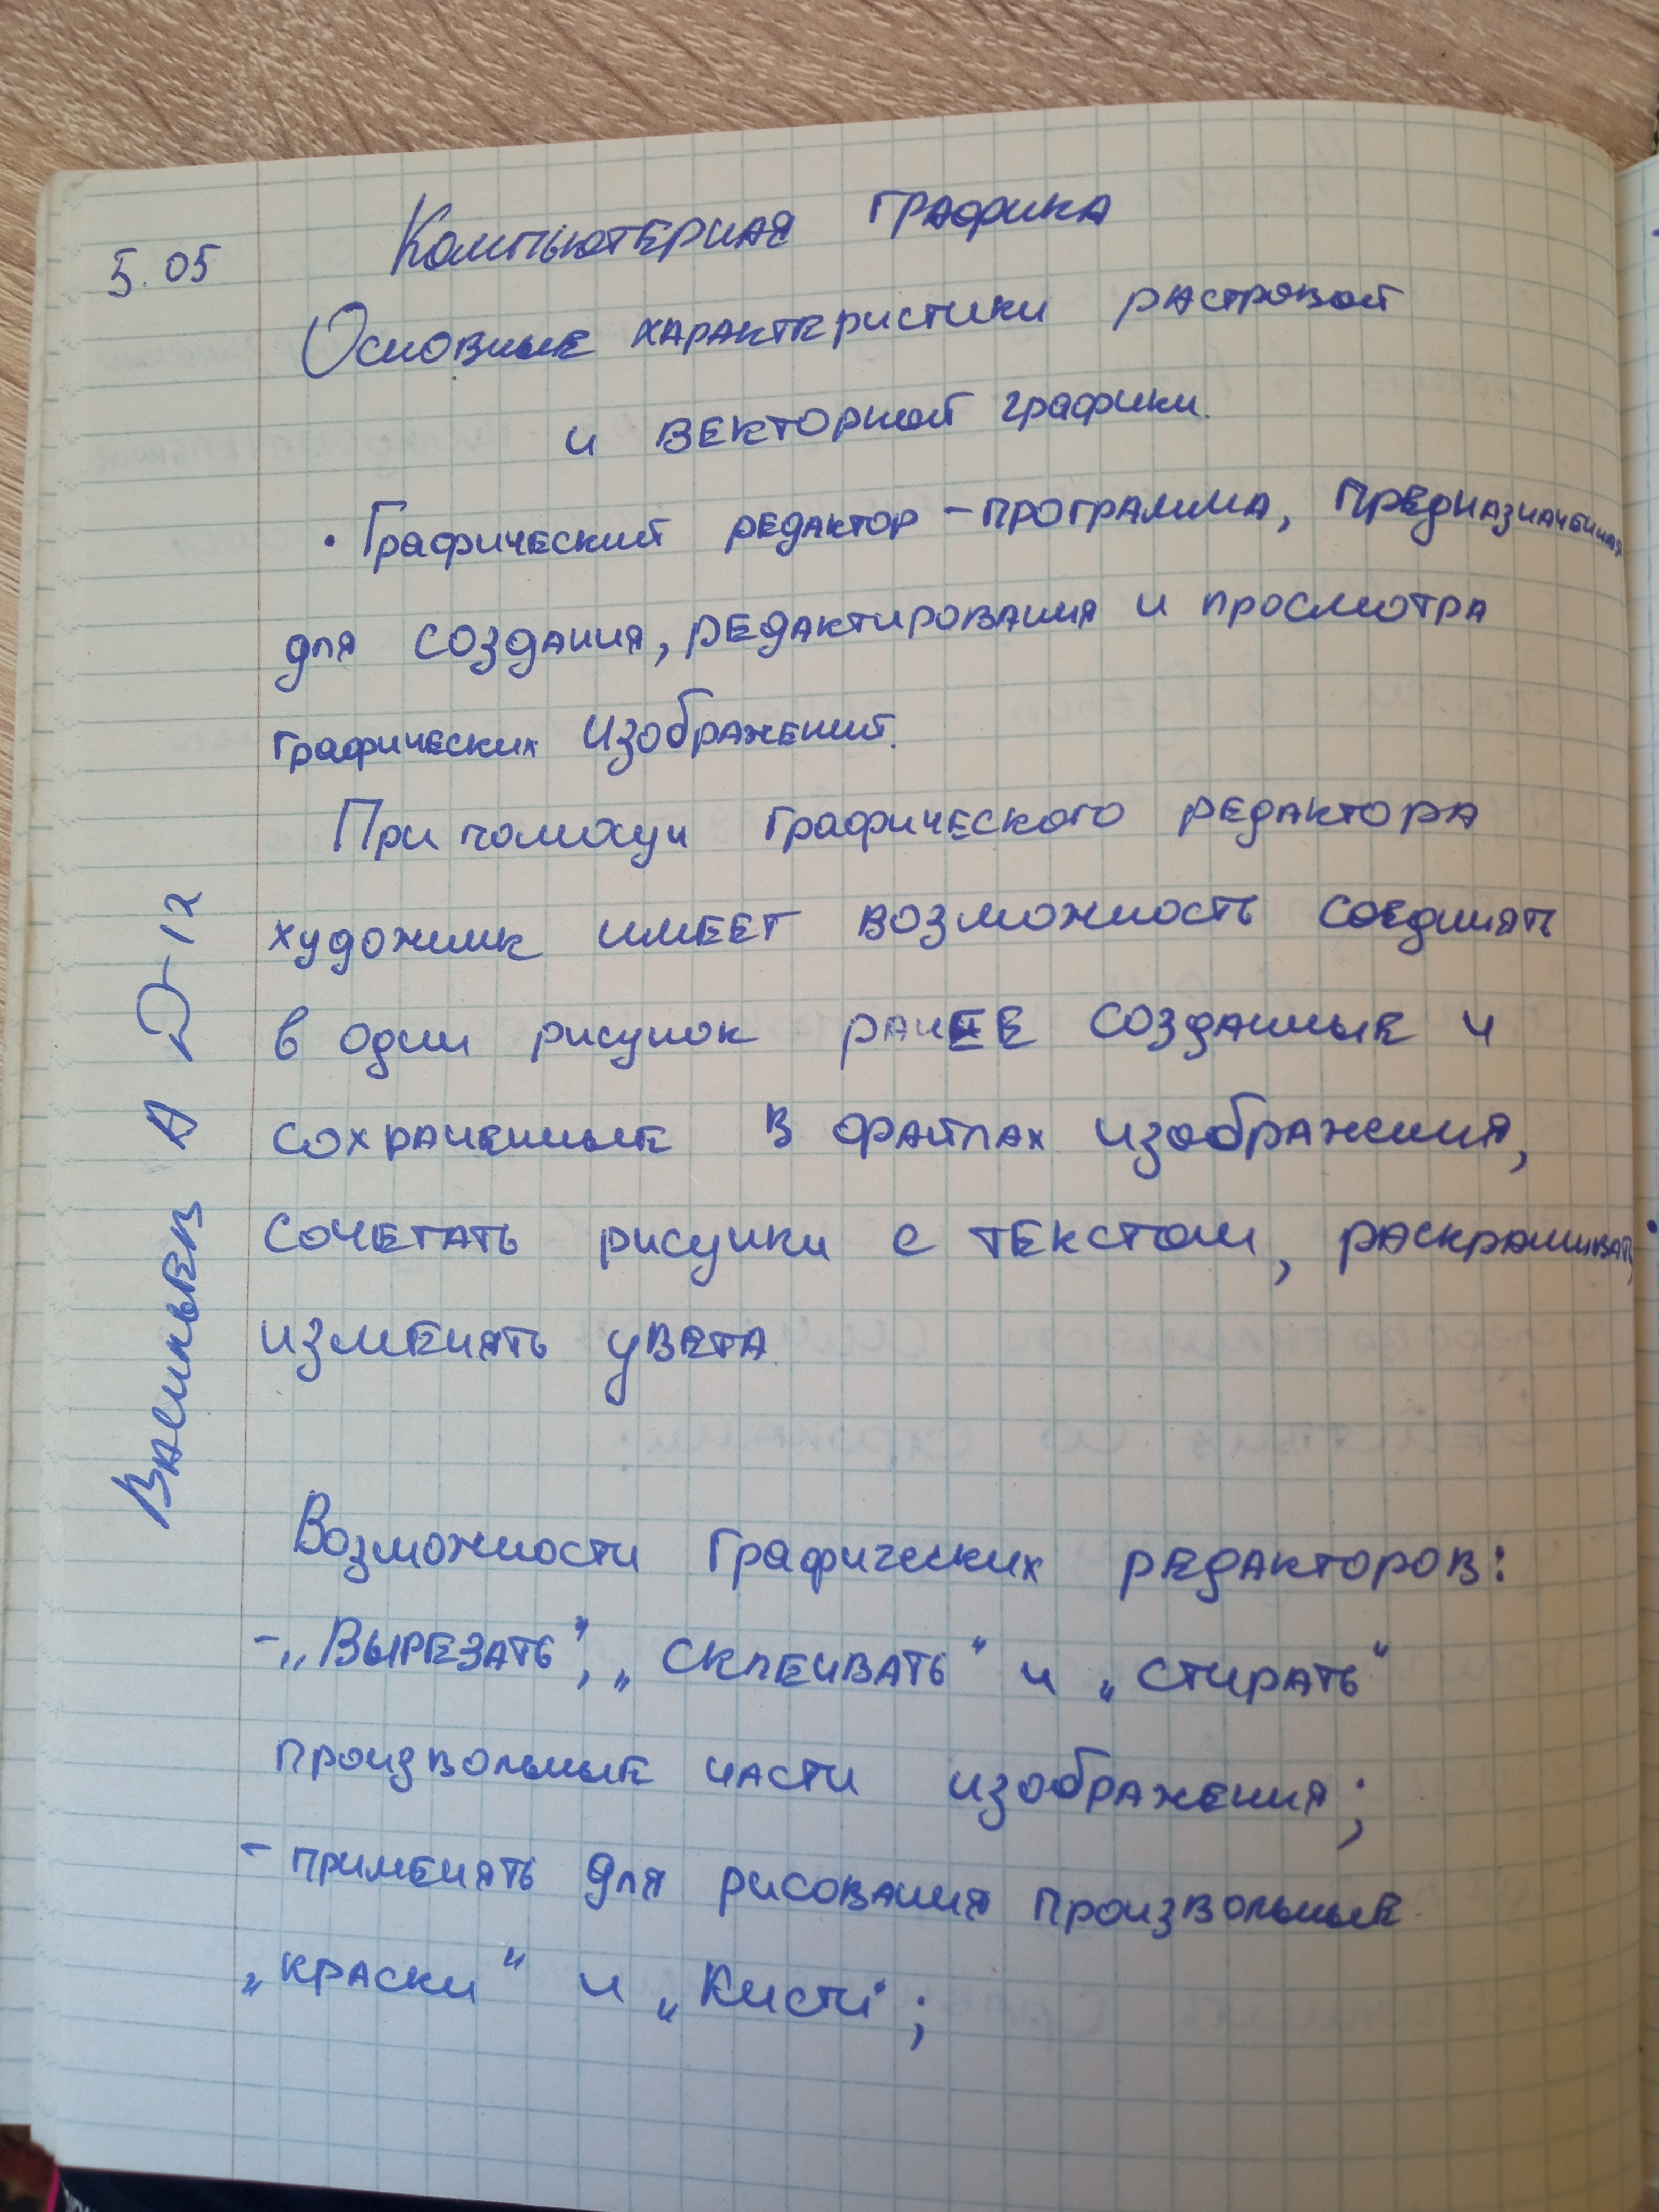 5.05
Компьютерная графика
Основные характеристики растровой
и векторной графики.
• Графический редактор - программа, предназначенная
для создания, редактирования и просмотра
графических изображений.
При помощи графического редактора
художник имеет возможность соединять
в один рисунок ранее созданные и
сохраненные в файлах изображения,
сочетать рисунки с текстом, раскрашивать,
изменять цвета
Васильев А Д-12
Возможности графических редакторов:
- „Вырезать", „склеивать" и „стирать"
произвольные части изображения;
- применять для рисования произвольные
„краски" и „Кисти";